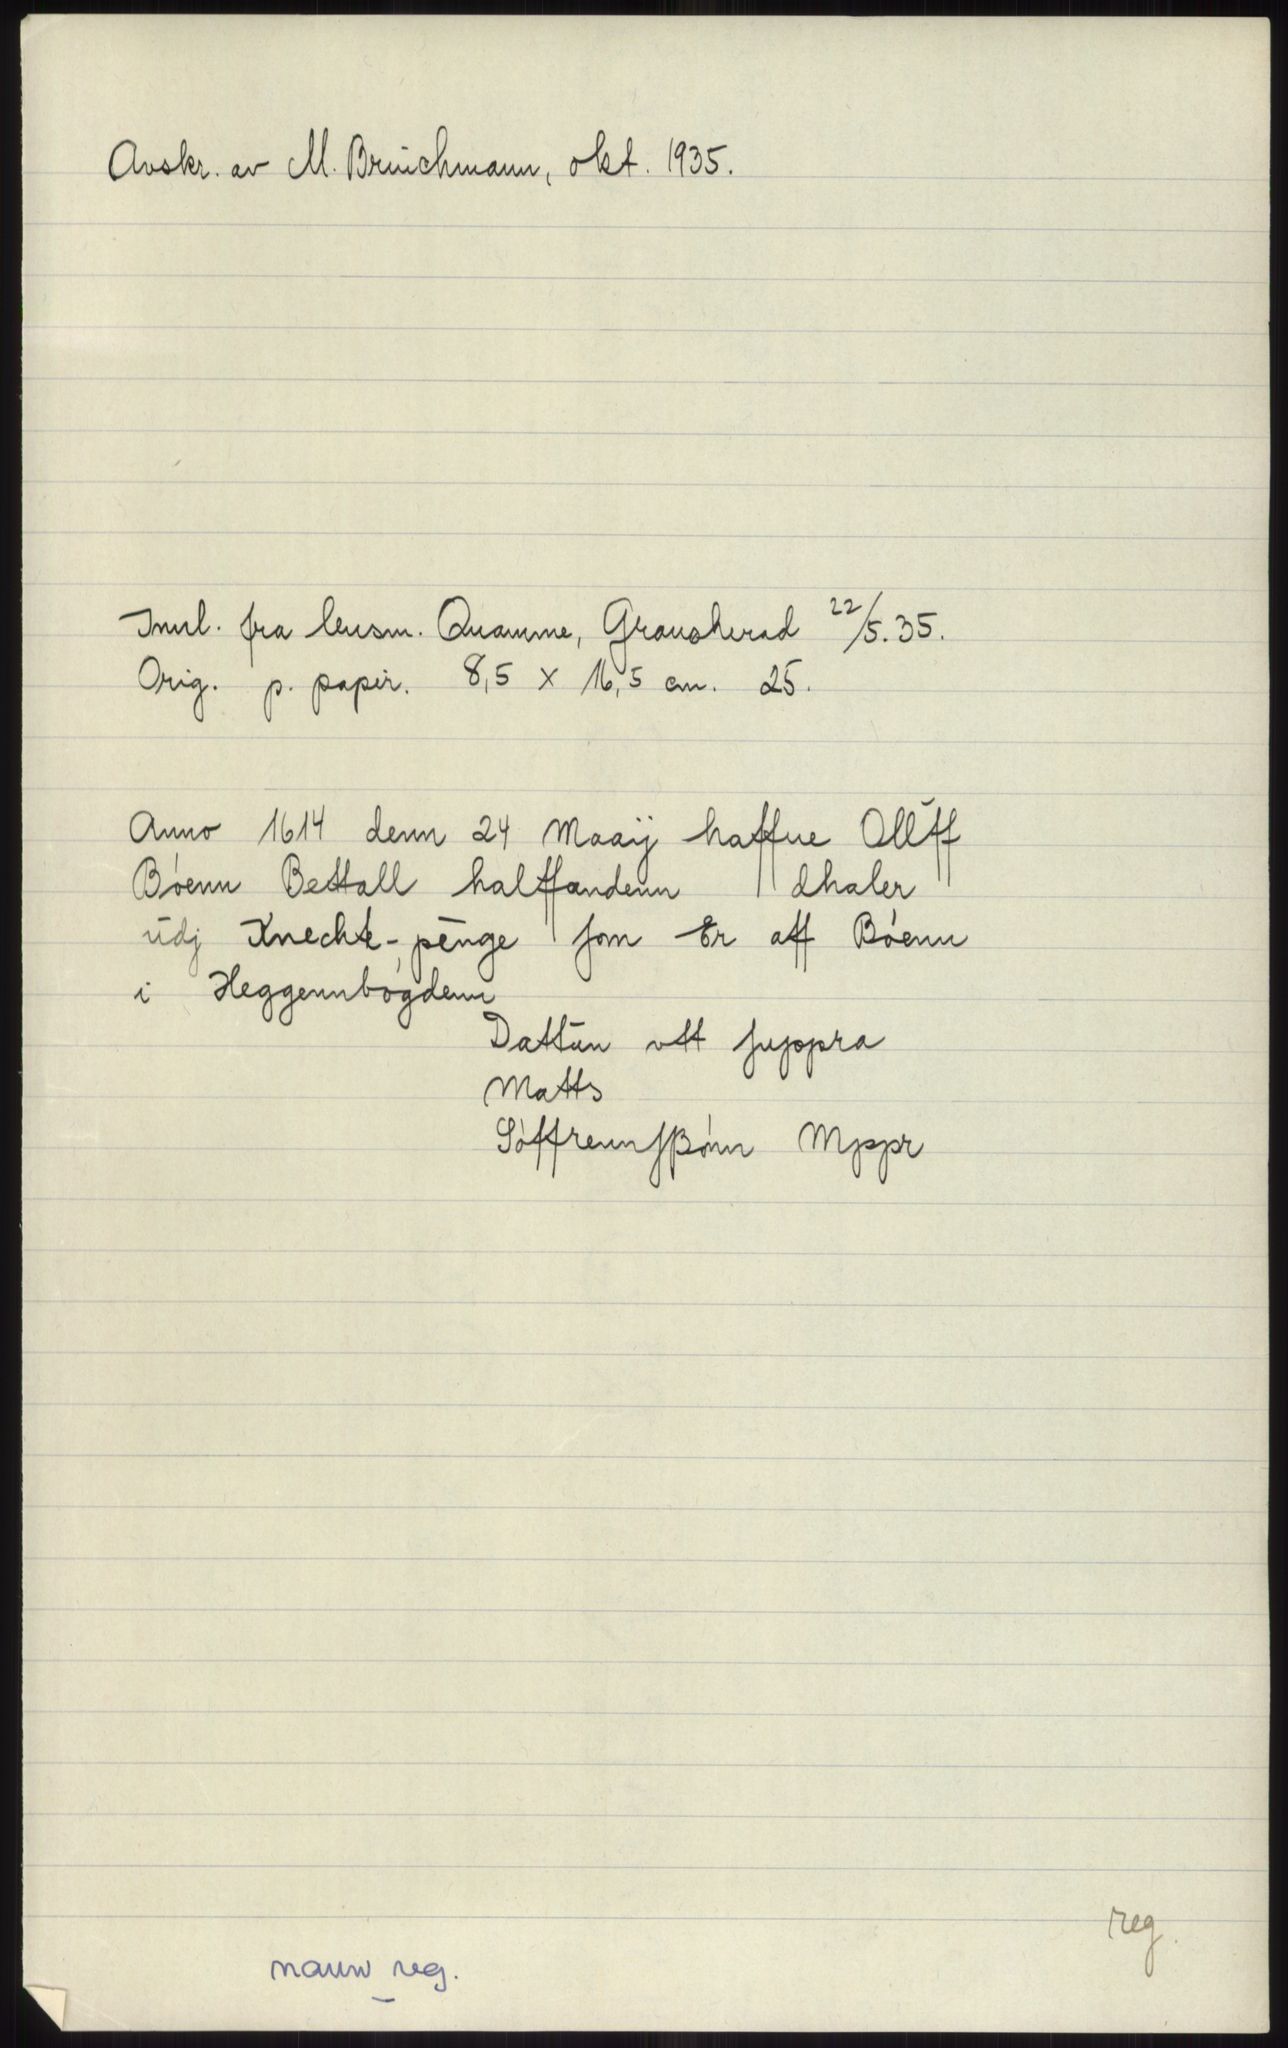 Avskr. av M. Brinchmann, okt. 1935.
Innl. fra lensm. Quamme, Gransherad 22/5. 35.
Orig. p. papir. 8,5 x 16,5 cm. 25.
Anno 1614 denn 24 Maaij haffue Ollŭff
Bóenn Bettall halffandenn dhaler
ŭdj Knecht-penge som Er aff Bóenn
i Heggennbógdenn
Dattŭn vtt suppra
Matts
Sóffrennsßónn Mppr
navn reg.
reg.